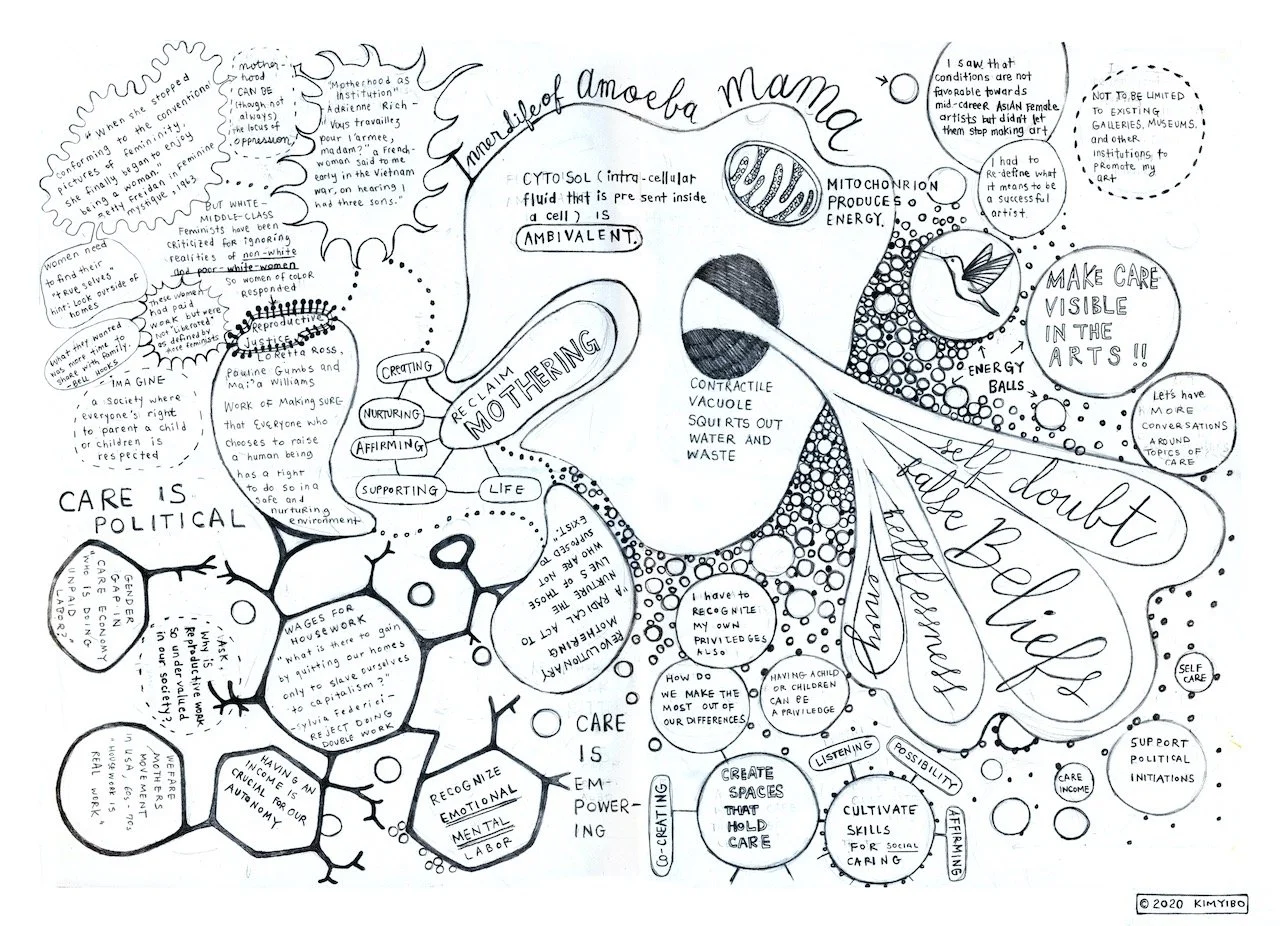 Inner Life of Amoeba Mama
"When she stopped
conforming to the conventional
pictures of femininity,
she finally began to enjoy
being a woman."
Betty Freidan in Feminine
mystique, 1963
mother-
hood
CAN BE
(though not
always)
the locus of
oppression,
"Motherhood as
Institution"
Adrienne Rich –
"Vous travaillez
pour l'armee,
madam?" a French-
woman said to me
early in the Vietnam
war, on hearing I
had three sons."
BUT WHITE-
MIDDLE-CLASS
Feminists have been
criticized for ignoring
realities of non-white
and poor-white-women
So women of color
responded
women need
to find their
"true selves"
hint: look outside of
homes
These women
had paid
work but were
not "liberated"
as defined by
those feminists
What they wanted
was more time to
share with family.
- Bell Hooks
IMAGINE
a society where
everyone's right
to parent a child
or children is
respected
Reproductive
Justice
Loretta Ross,
Pauline Gumbs and
Mai'a Williams
WORK OF Making SURE
that Everyone who
chooses to raise
a human being
has a right
to do so in a
safe and
nurturing
environment
CYTOSOL (intra-cellular
fluid that is present inside
a cell) IS
AMBIVALENT.
MITOCHONRION
PRODUCES
ENERGY.
I saw that
conditions are not
favorable towards
mid-career ASIAN Female
artists but didn't let
them stop making art
I had to
Re-define what
it means to be
a successful
artist.
NOT TO BE LIMITED
TO EXISTING
GALLERIES, MUSEUMS,
and other
institutions to
promote my
art
MAKE CARE
VISIBLE
IN THE
ARTS !!
ENERGY
BALLS
Let's have
MORE
conversations
AROUND
TOPICS OF
CARE
RECLAIM
MOTHERING
CREATING
NURTURING
AFFIRMING
SUPPORTING
LIFE
CONTRACTILE
VACUOLE
SQUIRTS OUT
WATER AND
WASTE
self doubt
false Beliefs
helplessness
envy
REVOLUTIONARY
MOTHERING
"A RADICAL ACT TO
NURTURE THE
LIVES OF THOSE
WHO ARE NOT
SUPPOSED TO
EXIST."
CARE IS
POLITICAL
GENDER
GAP IN
CARE ECONOMY
"WHO IS DOING
UNPAID
LABOR?"
Ask,
Why is
Reproductive work
so undervalued
in our society?
WAGES FOR
HOUSEWORK
"What is there to gain
by quitting our homes
only to slave ourselves
to capitalism?"
- Sylvia Federici -
REJECT DOING
DOUBLE WORK
WEFARE
MOTHERS
MOVEMENT
in USA, 60-70s
"HOUSEWORK IS
REAL WORK"
HAVING AN
INCOME IS
CRUCIAL FOR OUR
AUTONOMY
RECOGNIZE
EMOTIONAL
MENTAL
LABOR
CARE
IS
EM-
POWER-
ING
I have to
RECOGNIZE
MY OWN
PRIVILEDGES
ALSO
HOW DO
WE MAKE THE
MOST OUT OF
OUR DIFFERENCES
HAVING A CHILD
OR CHILDREN
CAN BE
A PRIVILEDGE
CREATE
SPACES
THAT
HOLD
CARE
CO-CREATING
LISTENING
POSSIBILITY
AFFIRMING
CULTIVATE
SKILLS
FOR SOCIAL
CARING
SELF
CARE
CARE
INCOME
SUPPORT
POLITICAL
INITIATIONS
© 2020 KIMYIBO